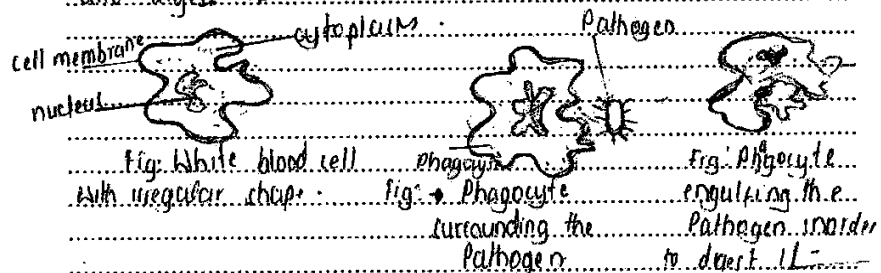 cytoplasm.
Pathogen
cell membrane
nucleus
Fig: White blood cell
with irregular shape.
Phagocyte
Fig: Phagocyte
surrounding the
Pathogen
Fig: Phagocyte
engulfing the
Pathogen inorder
to digest it